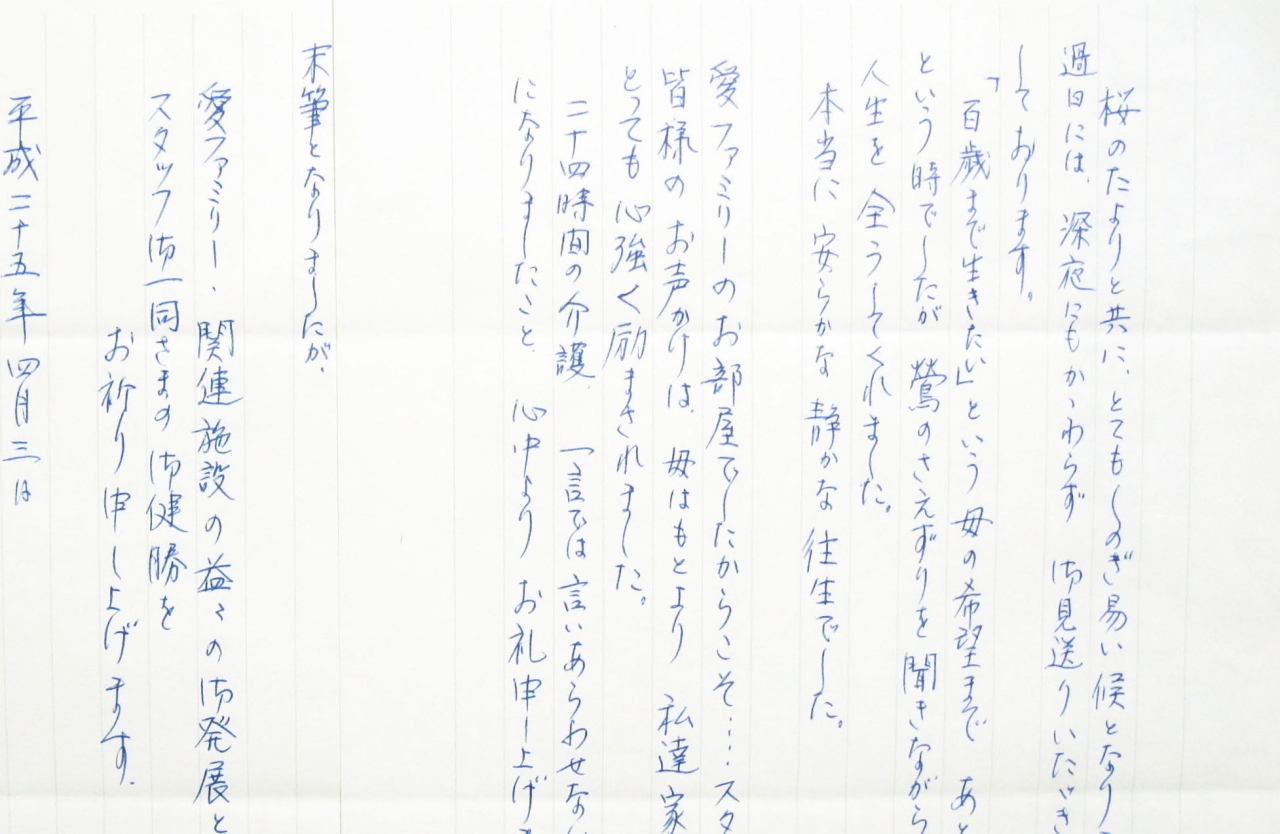 桜のたよりと共に、とてもしのぎ易い候となり
過日には、深夜にもかゝわらず 御見送りいただき
しております。
「百歳まで生きたい」という 母の希望まで あと
という時でしたが 鶯のさえずりを聞きながら
人生を全うしてくれました。
本当に 安らかな 静かな 往生でした。
愛ファミリーのお部屋でしたからこそ・・・・スタ
皆様の お声かけは、母はもとより 私達家
とっても 心強く励まされました。
二十四時間の介護、一言では 言いあらわせな
になりましたこと、心中より お礼申し上げ
末筆となりましたが、
愛ファミリー、関連施設の益々の御発展と
スタッフ御一同さまの 御健勝を
お祈り申し上げます.
平成二十五年四月三日